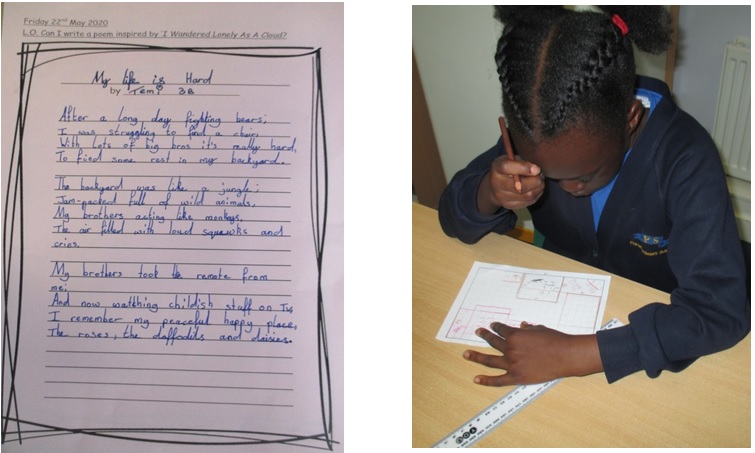 Friday 22nd May 2020
L.O. Can I write a poem inspired by 'I Wandered Lonely As A Cloud?
My life is Hard
by Temi 3B
After a long day fighting bears;
I was struggling to find a chair,
With lots of big bros it's really hard,
To find some rest in my backyard.
The backyard was like a jungle;
Jam-packed full of wild animals,
My brothers acting like monkeys,
The air filled with loud squawks and
cries.
My brothers took the remote from
me;
And now watthing childish stuff on
I remember my peaceful happy place,
The roses, the daffodils and daisies.